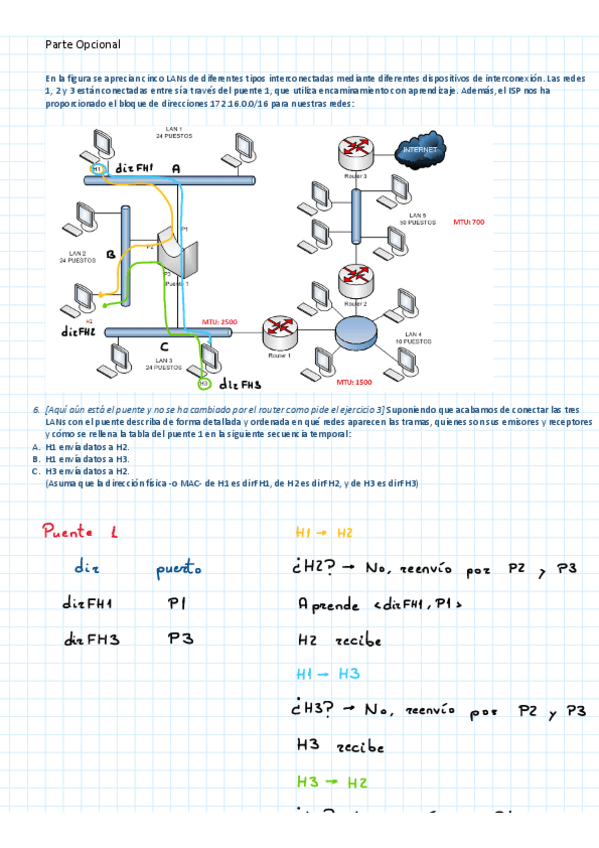 Parte Opcional
En la figura se aprecian cinco LANs de diferentes tipos interconectadas mediante diferentes dispositivos de interconexión. Las redes
1, 2 y 3 están conectadas entre sí a través del puente 1, que utiliza encaminamiento con aprendizaje. Además, el ISP nos ha
proporcionado el bloque de direcciones 172.16.0.0/16 para nuestras redes:
LAN 1
24 PUESTOS
H1
dirFH1
A
INTERNET
Router 3
LAN 5
50 PUESTOS
MTU: 700
P1
P2
P3
Puente 1
LAN 2
24 PUESTOS
B
H2
dirFH2
Router 2
MTU: 2500
C
LAN 3
24 PUESTOS
H3
dirFH3
Router 1
LAN 4
10 PUESTOS
MTU: 1500
6. [Aquí aún está el puente y no se ha cambiado por el router como pide el ejercicio 3] Suponiendo que acabamos de conectar las tres
LANs con el puente describa de forma detallada y ordenada en qué redes aparecen las tramas, quienes son sus emisores y receptores
y cómo se rellena la tabla del puente 1 en la siguiente secuencia temporal:
A. H1 envía datos a H2.
B. H1 envía datos a H3.
C. H3 envía datos a H2.
(Asuma que la dirección física -o MAC- de H1 es dirFH1, de H2 es dirFH2, y de H3 es dirFH3)
Puente 1
dir puerto
dirFH1 P1
dirFH3 P3
H1 → H2
¿H2? → No, reenvío por P2 y P3
Aprende <dirFH1, P1>
H2 recibe
H1 → H3
¿H3? → No, reenvío por P2 y P3
H3 recibe
H3 → H2